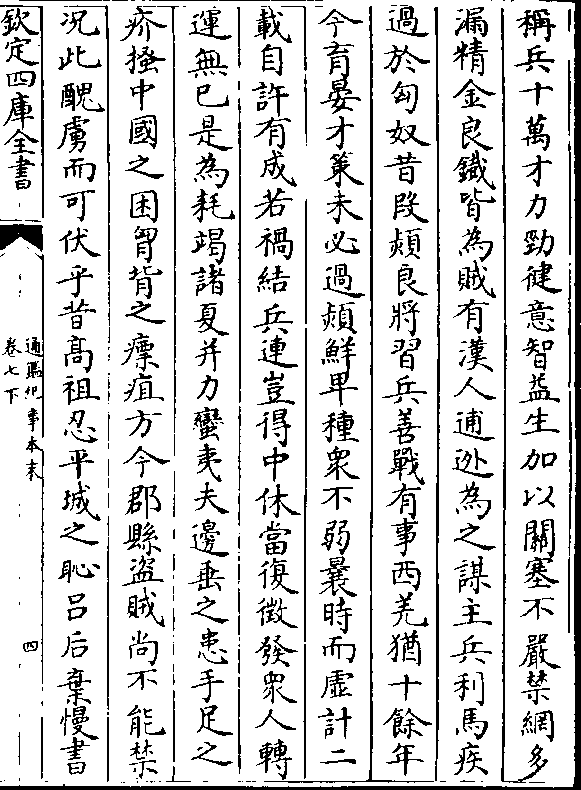 稱兵十萬才力勁健意智益生加以關塞不嚴禁網多
漏精金良鐵皆為賊有漢人逋逃為之謀主兵利馬疾
過於匈奴昔段熲良將習兵善戰有事西羌猶十餘年
今育晏才策未必過熲鮮卑種衆不弱曩時而虛計二
載自許有成若禍結兵連豈得中休當復徵發衆人轉
運無已是為耗竭諸夏并力蠻夷夫邊垂之患手足之
疥搔中國之困胷背之瘭疽方今郡縣盜賊尚不能禁
况此醜虜而可伏乎昔髙祖忍平城之恥吕后棄慢書
欽定四庫全書
通鑑紀事本末
卷七下
四